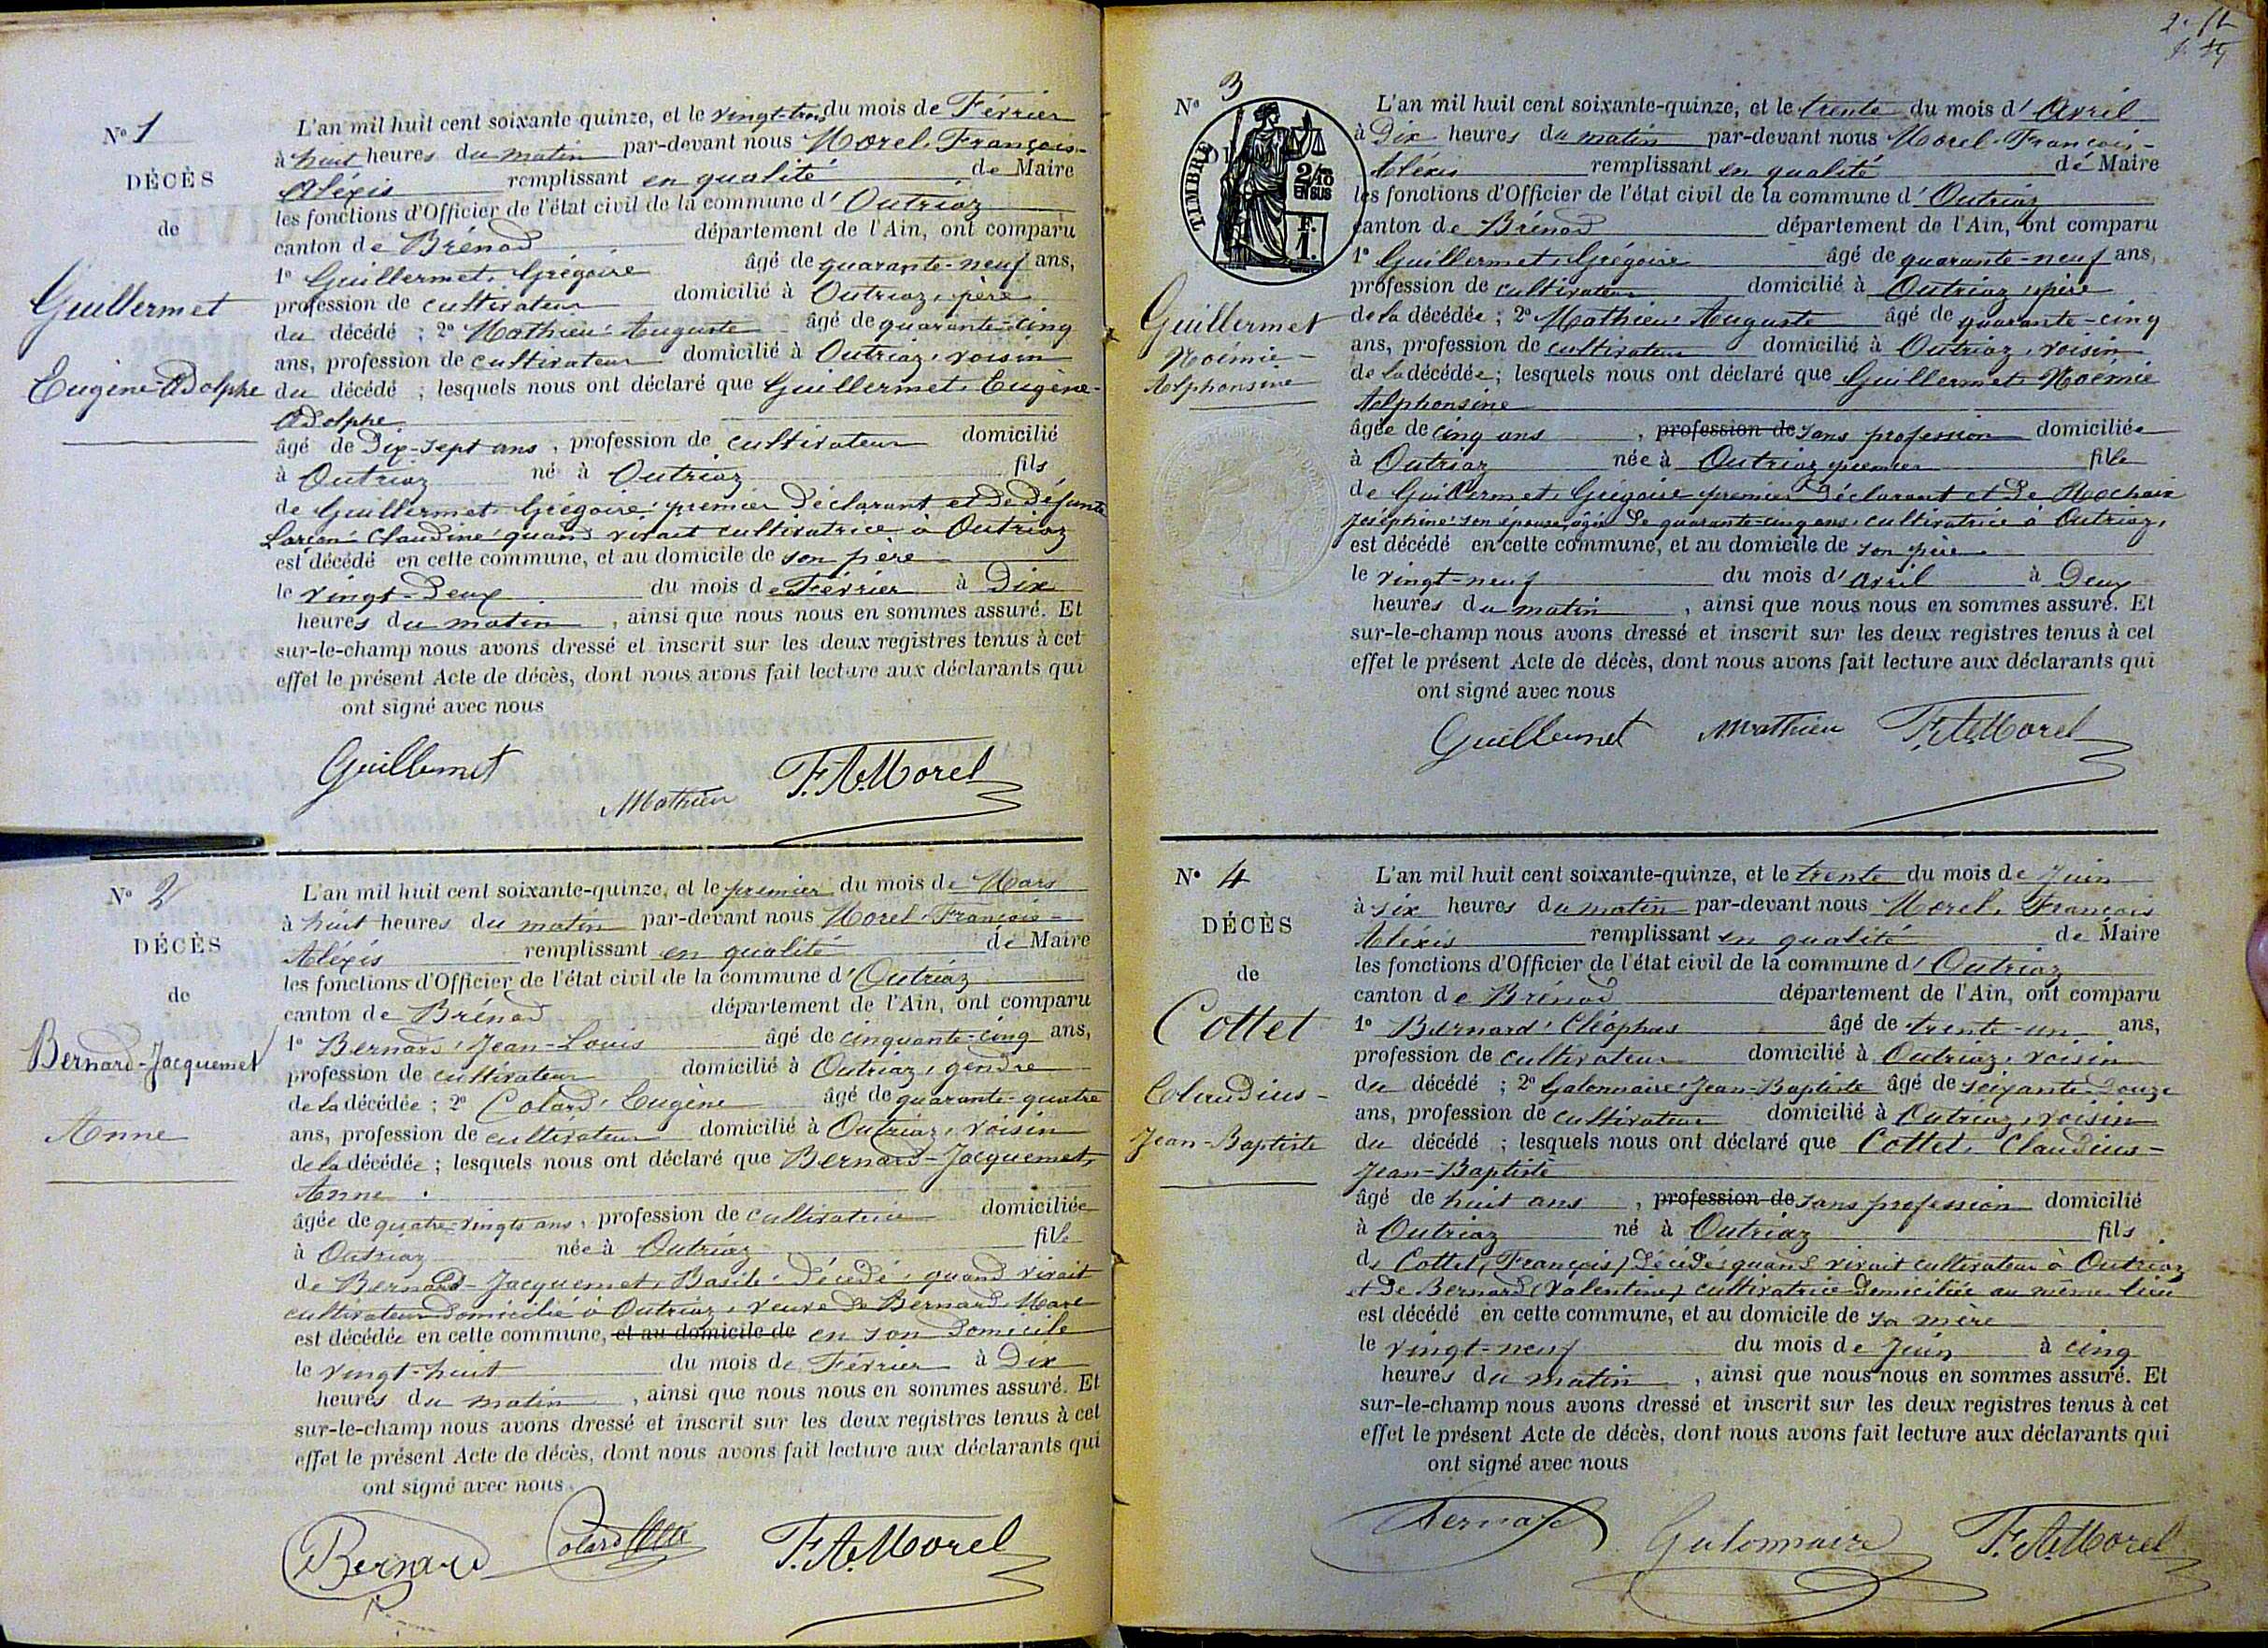 N° 1
DÉCÈS
de
Guillermet
Eugène-Adolphe
L'an mil huit cent soixante-quinze, et le vingt-trois du mois de Février
à huit heures du matin par-devant nous Morel, François-
Aléxis remplissant en qualité de Maire
les fonctions d'Officier de l'état civil de la commune d'Outriaz
canton de Brénod département de l'Ain, ont comparu
1° Guillermet, Grégoire âgé de quarante-neuf ans,
profession de cultivateur domicilié à Outriaz, père
du décédé ; 2° Mathieu, Auguste âgé de quarante-cinq
ans, profession de cultivateur domicilié à Outriaz, voisin
du décédé ; lesquels nous ont déclaré que Guillermet, Eugène-
Adolphe
âgé de Dix-sept ans, profession de cultivateur domicilié
à Outriaz né à Outriaz fils
de Guillermet, Grégoire, premier déclarant et de défunte
Claudine, quand vivait cultivatrice à Outriaz
est décédé en cette commune, et au domicile de son père
le vingt-deux du mois de Février à Dix
heures du matin, ainsi que nous nous en sommes assuré. Et
sur-le-champ nous avons dressé et inscrit sur les deux registres tenus à cet
effet le présent Acte de décès, dont nous avons fait lecture aux déclarants qui
ont signé avec nous
Guillermet
Mathieu
F.A. Morel
N° 2
DÉCÈS
de
Bernard-Jacquemet
Anne
L'an mil huit cent soixante-quinze, et le premier du mois de Mars
à huit heures du matin par-devant nous Morel, François-
Aléxis remplissant en qualité de Maire
les fonctions d'Officier de l'état civil de la commune d'Outriaz
canton de Brénod département de l'Ain, ont comparu
1° Bernard, Jean-Louis âgé de cinquante-cinq ans,
profession de cultivateur domicilié à Outriaz, gendre
de la décédée ; 2° Colard, Eugène âgé de quarante-quatre
ans, profession de cultivateur domicilié à Outriaz, voisin
de la décédée ; lesquels nous ont déclaré que Bernard-Jacquemet,
Anne
âgée de quatre-vingts ans, profession de cultivatrice domiciliée
à Outriaz née à Outriaz fille
de Bernard-Jacquemet, Basile, décédé, quand vivait
cultivateur domicilié à Outriaz, veuve de Bernard, Marc
est décédée en cette commune, et au domicile de en son domicile
le vingt-huit du mois de Février à Dix
heures du matin, ainsi que nous nous en sommes assuré. Et
sur-le-champ nous avons dressé et inscrit sur les deux registres tenus à cet
effet le présent Acte de décès, dont nous avons fait lecture aux déclarants qui
ont signé avec nous
Bernard
Colard
F.A. Morel
N° 3
TIMBRE
2/10
EN SUS
F.
1.
Guillermet
Noémie-
Alphonsine
L'an mil huit cent soixante-quinze, et le trente du mois d'Avril
à Dix heures du matin par-devant nous Morel, François-
Aléxis remplissant en qualité de Maire
les fonctions d'Officier de l'état civil de la commune d'Outriaz
canton de Brénod département de l'Ain, ont comparu
1° Guillermet, Grégoire âgé de quarante-neuf ans,
profession de cultivateur domicilié à Outriaz, père
de la décédée ; 2° Mathieu, Auguste âgé de quarante-cinq
ans, profession de cultivateur domicilié à Outriaz, voisin
de la décédée ; lesquels nous ont déclaré que Guillermet, Noémie
Alphonsine
âgée de cinq ans, profession de sans profession domiciliée
à Outriaz née à Outriaz premier fille
de Guillermet, Grégoire premier déclarant et de Rochaix
Joséphine, son épouse, âgée de quarante-cinq ans, cultivatrice à Outriaz,
est décédé en cette commune, et au domicile de son père
le vingt-neuf du mois d'avril à Deux
heures du matin, ainsi que nous nous en sommes assuré. Et
sur-le-champ nous avons dressé et inscrit sur les deux registres tenus à cet
effet le présent Acte de décès, dont nous avons fait lecture aux déclarants qui
ont signé avec nous
Guillermet
Mathieu
F.A. Morel
N° 4
DÉCÈS
de
Cottet
Claudius-
Jean-Baptiste
L'an mil huit cent soixante-quinze, et le trente du mois de Juin
à six heures du matin par-devant nous Morel, François
Aléxis remplissant en qualité de Maire
les fonctions d'Officier de l'état civil de la commune d'Outriaz
canton de Brénod département de l'Ain, ont comparu
1° Bernard, Cléophas âgé de trente-un ans,
profession de cultivateur domicilié à Outriaz, voisin
du décédé ; 2° Galonnaire, Jean-Baptiste âgé de soixante-douze
ans, profession de cultivateur domicilié à Outriaz, voisin
du décédé ; lesquels nous ont déclaré que Cottet, Claudius-
Jean-Baptiste
âgé de huit ans, profession de sans profession domicilié
à Outriaz né à Outriaz fils
de Cottet, (François) décédé, quand vivait cultivateur à Outriaz
et de Bernard (Valentine) cultivatrice domiciliée au même lieu
est décédé en cette commune, et au domicile de sa mère
le vingt-neuf du mois de Juin à cinq
heures du matin, ainsi que nous nous en sommes assuré. Et
sur-le-champ nous avons dressé et inscrit sur les deux registres tenus à cet
effet le présent Acte de décès, dont nous avons fait lecture aux déclarants qui
ont signé avec nous
Bernard
Galonnaire
F.A. Morel